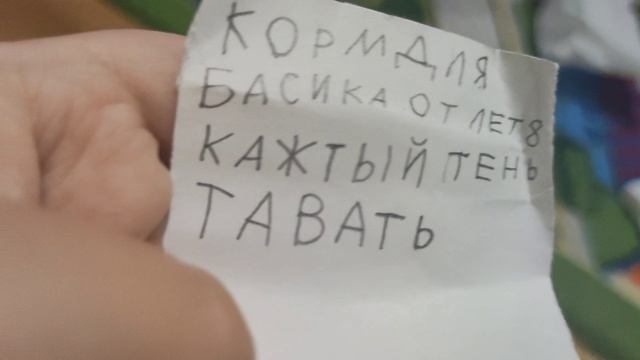 КОРМ ДЛЯ
БАСИКА ОТ ЛЕТЯ
КАЖТЫЙ ТЕНЬ
ТАВАТЬ